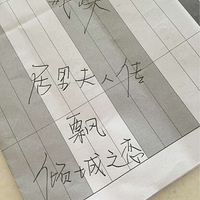 居里夫人传
飘
倾城之恋